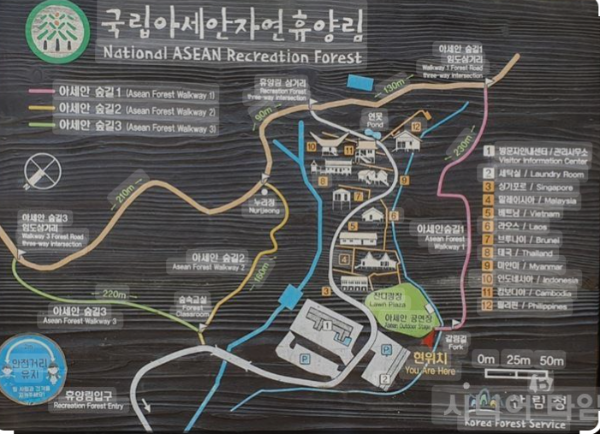 국립아세안자연휴양림
National ASEAN Recreation Forest
아세안 숲길 1 (Asean Forest Walkway 1)
아세안 숲길 2 (Asean Forest Walkway 2)
아세안 숲길 3 (Asean Forest Walkway 3)
휴양림 삼거리
Recreation Forest
three-way intersection
130m
아세안 숲길1
임도삼거리
Walkway 1 Forest Road
three-way intersection
90m
연못
Pond
12
11
10
9
8
7
6
5
4
3
230m
210m
누리정
Nurijeong
아세안 숲길3
임도삼거리
Walkway 3 Forest Road
three-way intersection
아세안 숲길 2
Asean Forest Walkway 2
아세안숲길1
Asean Forest
Walkway 1
220m
숲속교실
Forest
Classroom
아세안 숲길 3
Asean Forest Walkway 3
잔디광장
Lawn Plaza
아세안 공연장
Asean Outdoor Stage
갈림길
Fork
현위치
You Are Here
1
P
P
2
안전거리
유지
휴양림입구
Recreation Forest Entry
1 방문자안내센터/관리사무소
Visitor Information Center
2 세탁실 / Laundry Room
3 싱가포르 / Singapore
4 말레이시아 / Malaysia
5 베트남 / Vietnam
6 라오스 / Laos
7 브루나이 / Brunei
8 태국 / Thailand
9 미얀마 / Myanmar
10 인도네시아 / Indonesia
11 캄보디아 / Cambodia
12 필리핀 / Philippines
0m 25m 50m
산림청
Korea Forest Service